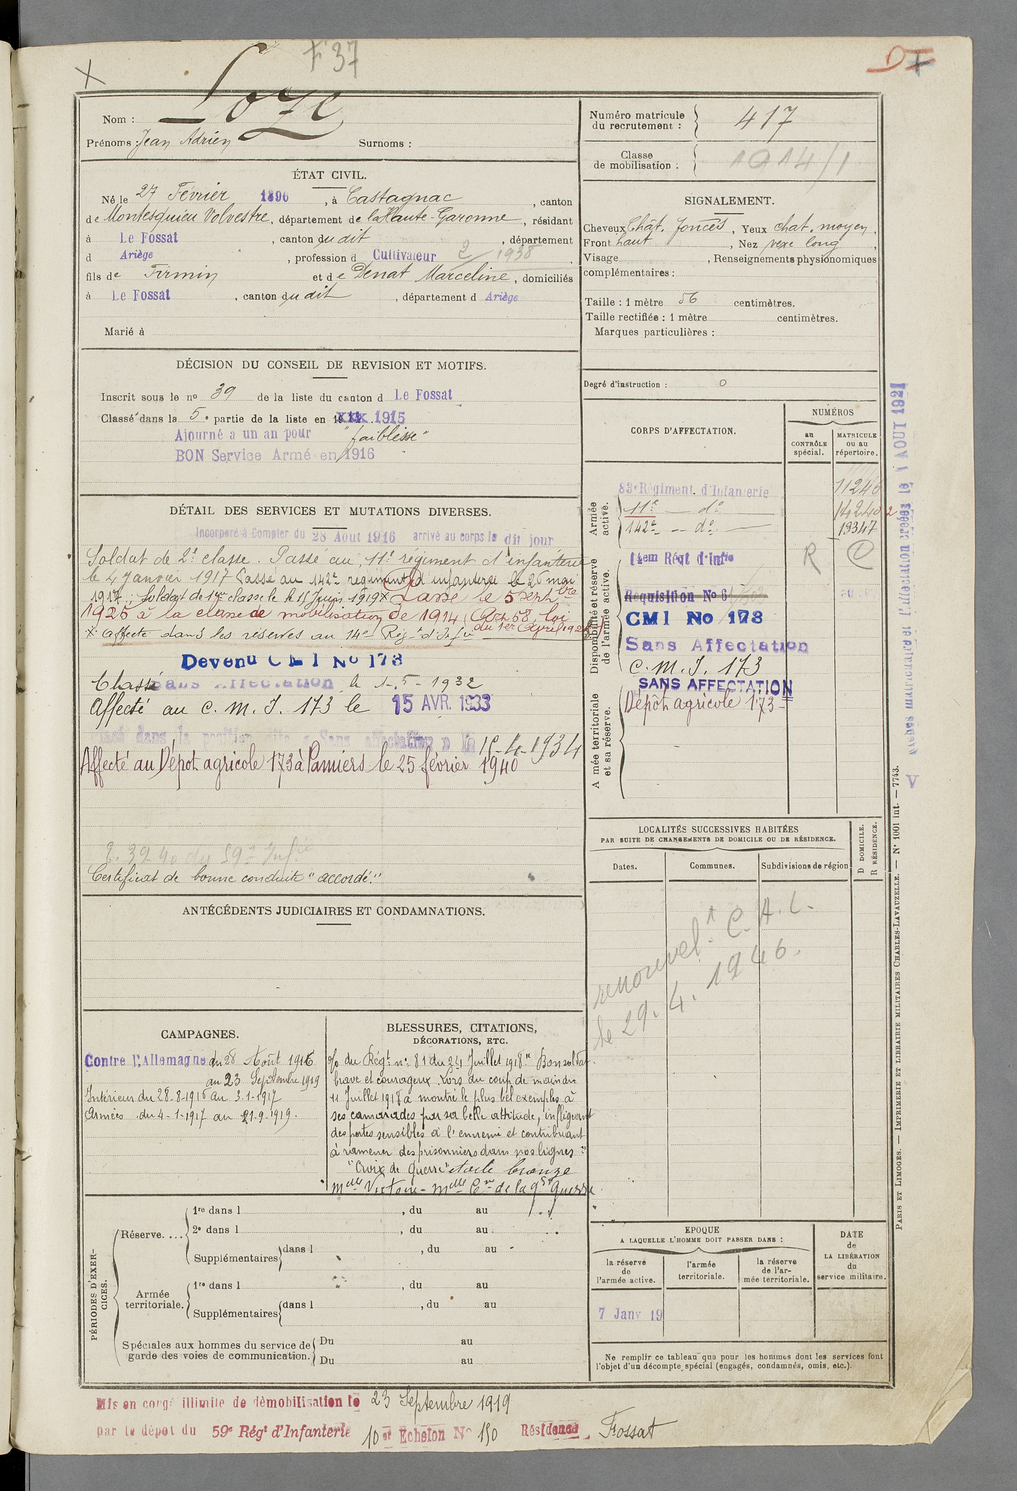 F 37
Nom : Loze
Prénoms : Jean Adrien Surnoms :
Numéro matricule du recrutement : 417
Classe de mobilisation : 1914/1
ÉTAT CIVIL.
Né le 27 Février 1896, à Castagnac, canton
de Montesquieu Volvestre, département de la Haute-Garonne, résidant
à Le Fossat, canton du dit, département
d Ariège, profession d Cultivateur 2/1938
fils de Firmin et de Denat Marceline, domiciliés
à Le Fossat, canton du dit, département d Ariège
Marié à
SIGNALEMENT.
Cheveux Chât. foncés, Yeux chat. moyen,
Front haut, Nez vexe long,
Visage , Renseignements physionomiques
complémentaires :
Taille : 1 mètre 56 centimètres.
Taille rectifiée : 1 mètre centimètres.
Marques particulières :
DÉCISION DU CONSEIL DE REVISION ET MOTIFS.
Inscrit sous le no 39 de la liste du canton d Le Fossat
Classé dans la 5e partie de la liste en 1915
Ajourné a un an pour "faiblesse"
BON Service Armé en 1916
Degré d'instruction : 0
CORPS D'AFFECTATION.
NUMÉROS
au CONTRÔLE spécial.
MATRICULE ou au répertoire.
Armée active.
83e Régiment d'Infanterie 11240
11e — do —
142e — do — 19347
Disponibilité et réserve de l'armée active.
14em Régt d'Infie
R
Réquisition No 6
CMI No 173
Sans Affectation
C. M. I. 173
SANS AFFECTATION
Dépôt agricole 173
Armée territoriale et sa réserve.
DÉTAIL DES SERVICES ET MUTATIONS DIVERSES.
Incorporé à Compter du 28 Aout 1916 arrivé au corps le dit jour
Soldat de 2e classe. Passé au 11e régiment d'infanterie
le 4 Janvier 1917 Passé au 142e régiment d'infanterie le 20 mai
1917. Soldat de 1re classe le 15 Juin 1919 x Passé le 5 septbre
1925 à la classe de mobilisation de 1914 (Art 58, loi
du 1er Avril 1923)
x affecté dans les réserves au 14e Rég. d'Infie
Devenu C M I No 173
Classé sans affectation le 1-5-1932
Affecté au C. M. I. 173 le 15 AVR. 1933
Classé dans la position dite « Sans affectation » le 15-4-1934
Affecté au Dépôt agricole 173 à Pamiers le 25 février 1940
Certificat de bonne conduite "accordé."
LOCALITÉS SUCCESSIVES HABITÉES
PAR SUITE DE CHANGEMENTS DE DOMICILE OU DE RÉSIDENCE.
Dates. Communes. Subdivisions de région
D DOMICILE. R RÉSIDENCE.
renouvelt C.A.C.
le 29.4.1946.
ANTÉCÉDENTS JUDICIAIRES ET CONDAMNATIONS.
CAMPAGNES.
Contre l'Allemagne du 28 Août 1916
au 23 Septembre 1919
Intérieur du 28-8-1916 au 3-1-1917
Armées du 4-1-1917 au 21-9-1919.
BLESSURES, CITATIONS,
DÉCORATIONS, ETC.
o/o du Régt no 81 du 24 Juillet 1918 "Bon soldat
brave et courageux. Lors du coup de main du
11 Juillet 1918 a montré le plus bel exemple à
ses camarades par sa belle attitude, infligeant
des pertes sensibles à l'ennemi et contribuant
à ramener des prisonniers dans nos lignes"
"Croix de Guerre" étoile bronze
Mlle Victoire - Mlle Cm de la gde Guerre
PÉRIODES D'EXERCICES.
Réserve....
1re dans l , du au
2e dans l , du au
Supplémentaires dans l , du au
Armée territoriale.
1re dans l , du au
Supplémentaires dans l , du au
Spéciales aux hommes du service de garde des voies de communication.
Du au
Du au
EPOQUE
A LAQUELLE L'HOMME DOIT PASSER DANS :
la réserve de l'armée active.
l'armée territoriale.
la réserve de l'armée territoriale.
DATE de LA LIBÉRATION du service militaire.
7 Janv 19
Ne remplir ce tableau que pour les hommes dont les services font
l'objet d'un décompte spécial (engagés, condamnés, omis, etc.).
Mis en congé illimité de démobilisation le 23 Septembre 1919
par le dépôt du 59e Régt d'Infanterie 10e Echelon No 150 Résidence Fossat
PARIS ET LIMOGES. — IMPRIMERIE ET LIBRAIRIE MILITAIRES CHARLES-LAVAUZELLE. — No 1001 int. — 7743.